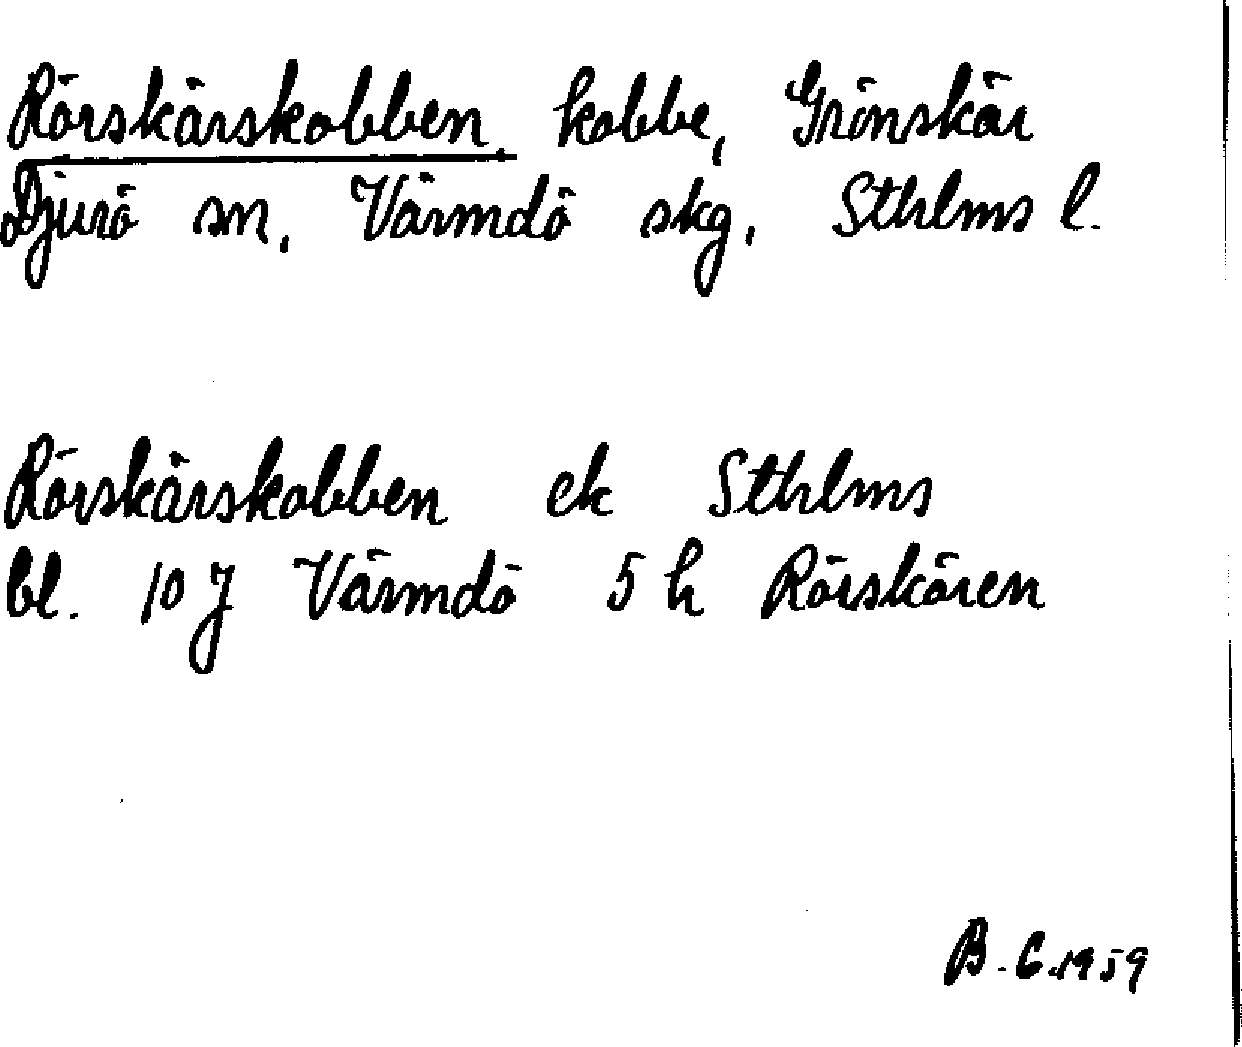 Rörskärskobben, kobbe, Grönskär
Djurö sn, Värmdö skg, Sthlms l.
Rörskärskobben ek Sthlms
bl. 10 J Värmdö 5 h Rörskären
B. C. 1959